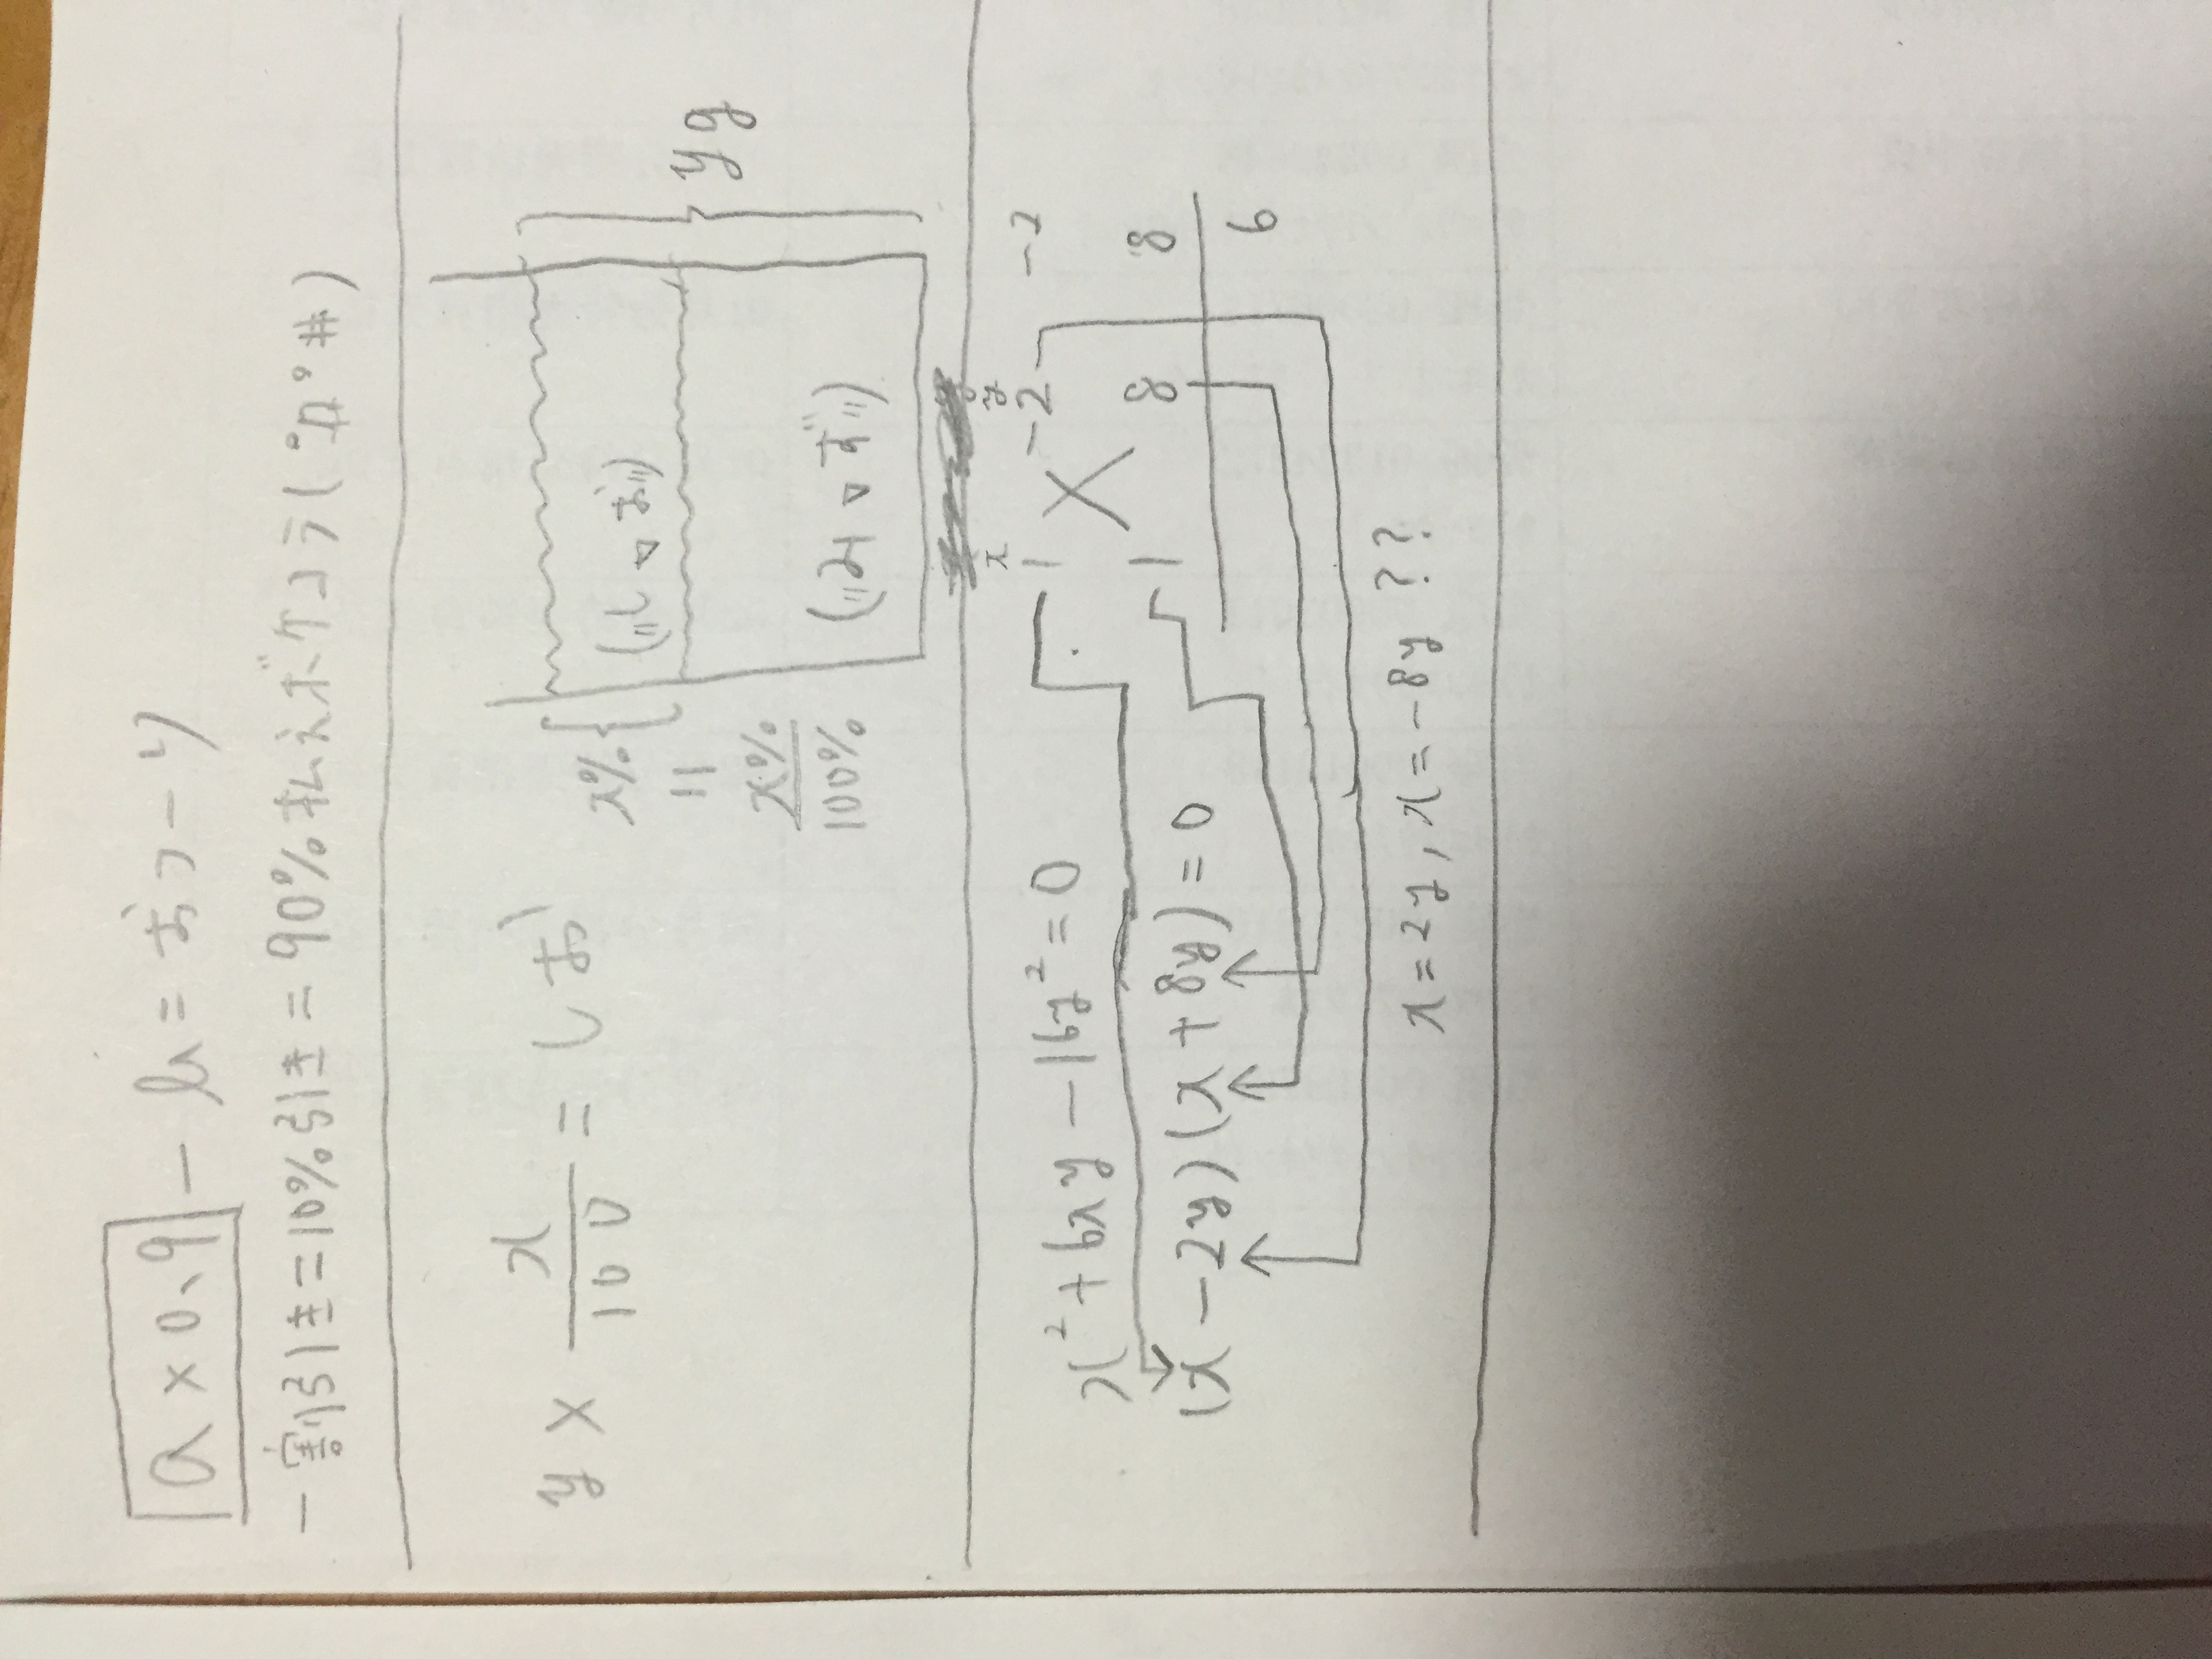 a×0.9 - b = おつり
一割引き=10%引き=90%
y × x/100 = しお
x% = x%/100%
(("しお"))
(("みず"))
yg
x²+6xy-16y²=0
(x-2y)(x+8y)=0
x y
1 -2 -2
1 8 8
6
x=2y, x=-8y ??